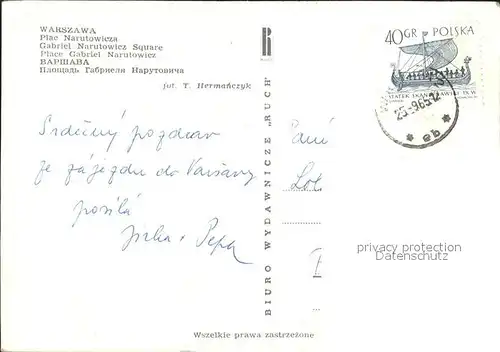 WARSZAWA
Plac Narutowicza
Gabriel Narutowicz Square
Place Gabriel Narutowicz
ВАРШАВА
Площадь Габриеля Нарутовича
fot. T. Hermańczyk
40 GR POLSKA
STATEK SKANDYNAWSKI IX W.
25-9.65-12
Srdečný pozdrav
ze zájezdu do Varšavy
posílá
Jirka + Pepa
BIURO WYDAWNICZE „RUCH"
Paní
privacy protection
for AnsichtskartenCenter
Wszelkie prawa zastrzeżone